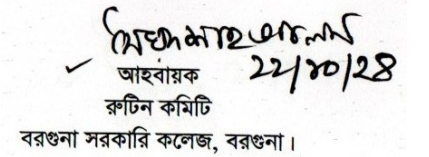 সৈয়দ শাহ আলম
২২/১০/২৪
আহবায়ক
রুটিন কমিটি
বরগুনা সরকারি কলেজ, বরগুনা।